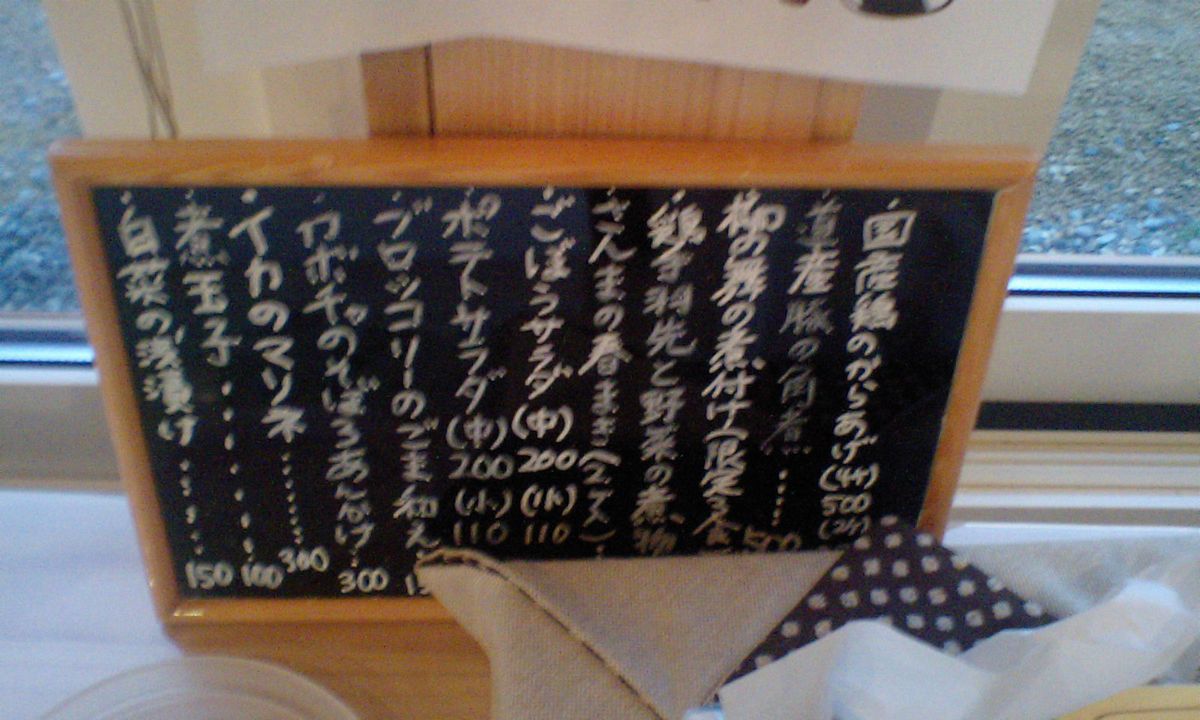 ・国産鶏のからあげ(4ケ)500(2ケ)
・道産豚の角煮……500
・柳の舞の煮付け(限定3食
・鶏手羽先と野菜の煮物
・さんまの春まき(2ズ)・
・ごぼうサラダ(中)200(小)110
・ポテトサラダ(中)200(小)110
・ブロッコリーのごま和え
・カボチャのそぼろあんかけ・300
・イカのマリネ……300
・煮玉子……100
・白菜の浅漬け……150